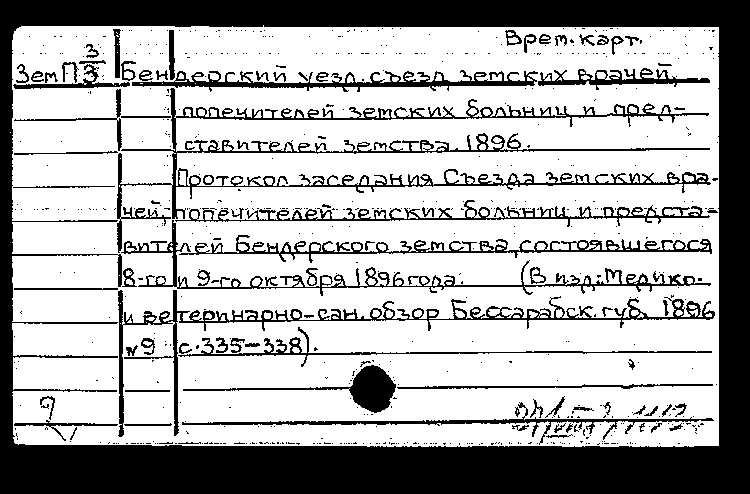 Врем. карт.
Зем П 3/3 Бендерский уезд. съезд земских врачей,
попечителей земских больниц и пред-
ставителей земства. 1896.
Протокол заседания Съезда земских вра-
чей, попечителей земских больниц и предста-
вителей Бендерского земства, состоявшегося
8-го и 9-го октября 1896 года. (В изд: Медико-
и ветеринарно-сан. обзор Бессарабск. губ. 1896
№9 с. 335-338).